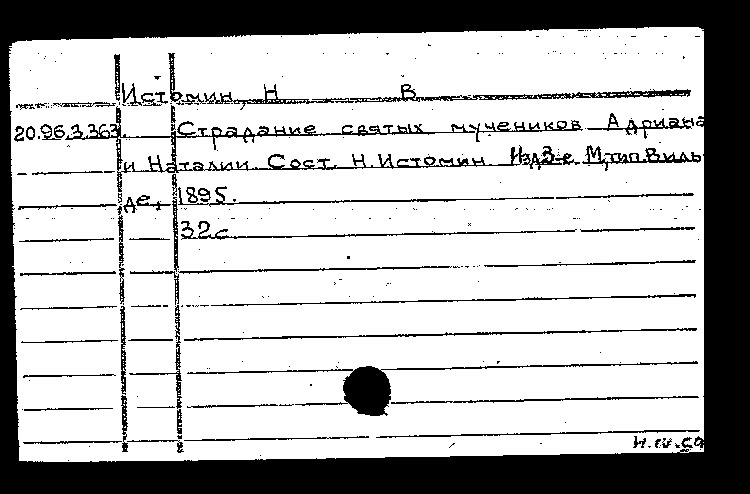 Истомин, Н В
20.96.3.363. Страдание святых мучеников Адриана
и Наталии. Сост. Н. Истомин. Изд 3-е. М, тип. Виль
де, 1895.
32 с